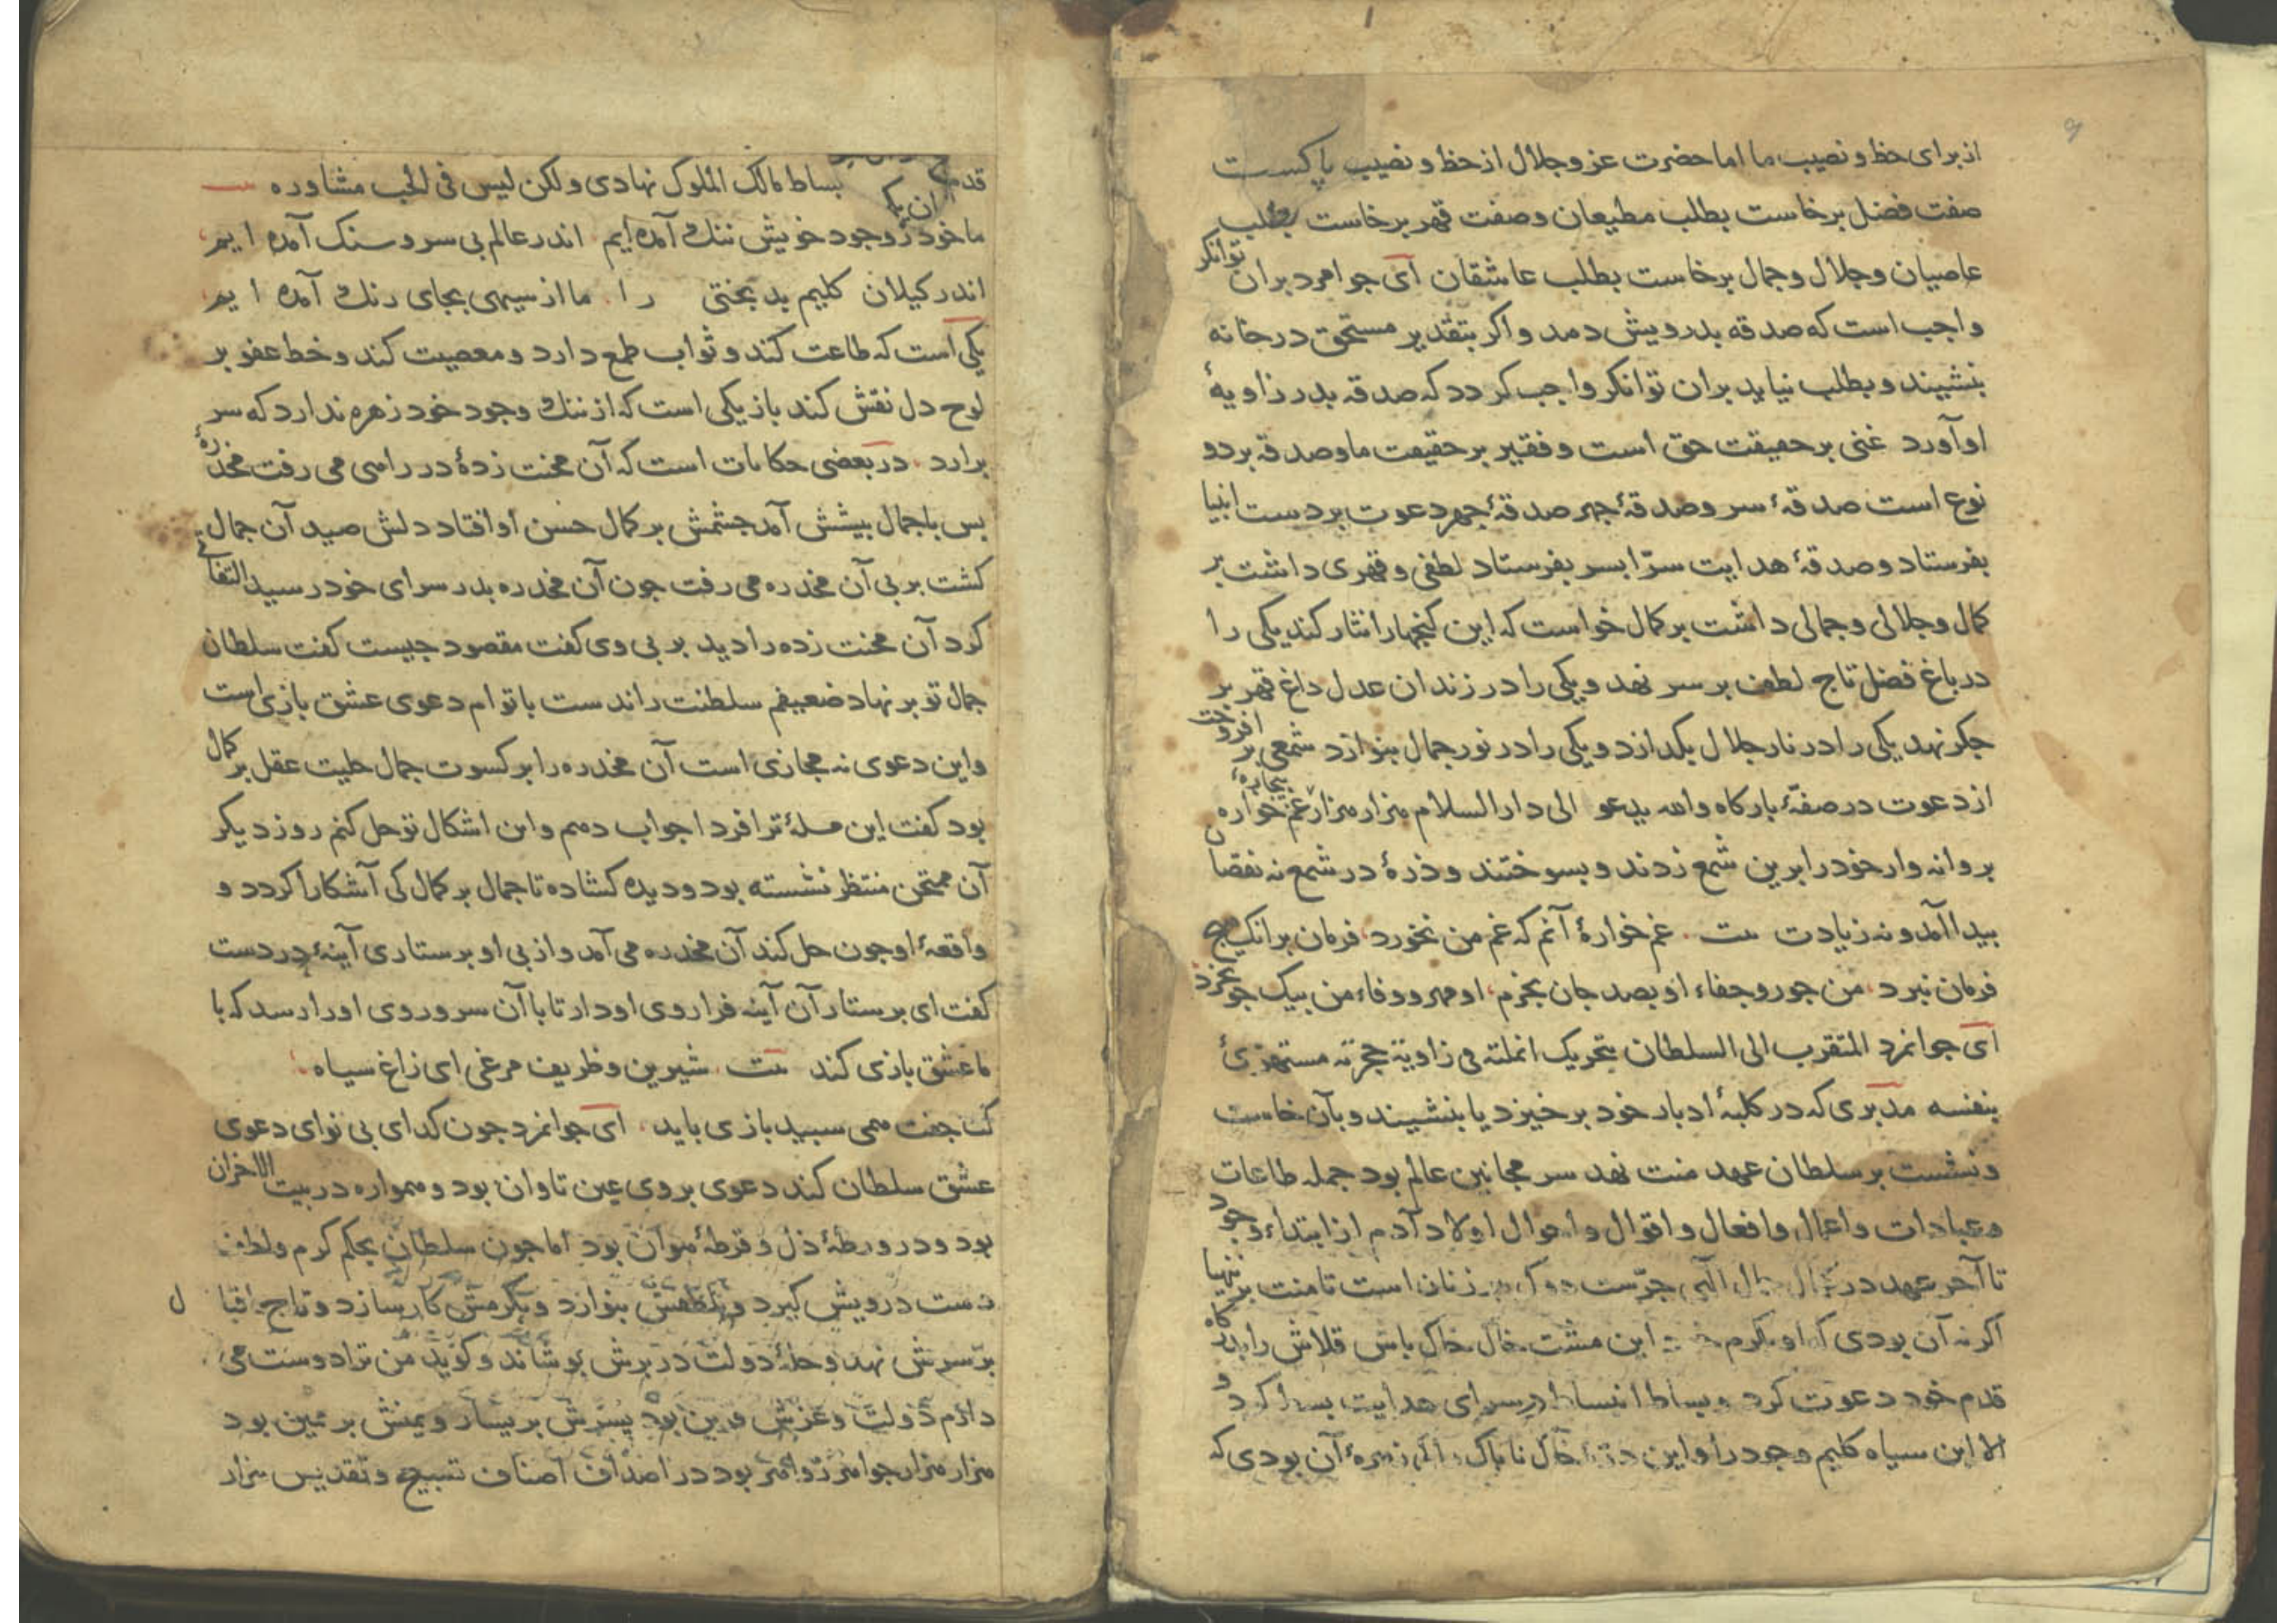 از برای حظ و نصیب ما اما حضرت عز و جلال از حظ و نصیب پاکست
صفت فضل برخاست بطلب مطیعان و صفت قهر برخاست بطلب
عاصیان و جلال و جمال برخاست بطلب عاشقان ای جوامرد بران توانکر
واجب است که صدقه بدرویش دهد و اکر بتقدیر مستحق در خانه
بنشیند و بطلب نیاید بران توانکر واجب کردد که صدقه بدر زاویهٔ
او آورد غنی بر حقیقت حق است و فقیر بر حقیقت ما و صدقه بر دو
نوع است صدقهٔ سر و صدقهٔ جهر صدقهٔ جهر دعوت بر دست انبیا
بفرستاد و صدقهٔ هدایت سرّا بسر بفرستاد لطفی و قهری داشت بر
کمال و جلالی و جمالی داشت بر کمال خواست که این کنجها را نثار کند یکی را
در باغ فضل تاج لطف بر سر نهد و یکی را در زندان عدل داغ قهر بر
جکر نهد یکی را در نار جلال بکدازد و یکی را در نور جمال بنوازد شمعی بر افروخت
از دعوت در صفّهٔ بارکاه والله یدعو الی دار السلام هزار هزار غم خواره بیجارهٔ
بروانه وار خود را برین شمع زدند و بسوختند و ذرهٔ در شمع نه نقصان
بیدا آمد و نه زیادت بیت غم خوارهٔ آنم که غم من نخورد فرمان بر انک هیچ
فرمان نبرد من جور و جفاء او بصد جان بخرم او مهر و وفاء من بیک جو نخرد
ای جوانمرد المتقرب الی السلطان بتحریک انملته فی زاویة حجرته مستهزئ
بنفسه مدبری که در کلبهٔ ادبار خود برخیزد یا بنشیند و بآن خاست
و نشست بر سلطان عهد منت نهد سر مجانین عالم بود جمله طاعات
و عبادات و اعمال و افعال و اقوال و احوال اولاد آدم از ابتداء وجود
تا آخر عهد در جمال الهی زنان است تا منت بر ننهیا
اکر نه آن بودی که او بکرم این مشت خاک باش قلاش را بدرکاه
قدم خود دعوت کرد و بساط انبساط در سرای هدایت بسط کرد و
الا این سیاه کلیم وجود را و این خاک ناپاک را کی زهرهٔ آن بودی که
قدم بساط مالک الملوک نهادی ولکن لیس فی الحب مشاوره بیت
ما خود ز وجود خویش ننک آمده ایم اندر عالم بی سر و سنک آمده ایم
اندر کیلان کلیم بدبختی را ما از سیهی بجای رنک آمده ایم
یکی است که طاعت کند و ثواب طمع دارد و معصیت کند و خط عفو بر
لوح دل نقش کند باز یکی است که از ننک وجود خود زهره ندارد که سر
برارد در بعضی حکایات است که آن محنت زدهٔ در راهی می رفت مخدرهٔ
بس با جمال بیشش آمد جشمش بر کمال حسن او افتاد دلش صید آن جمال
کشت بر بی آن مخدره می رفت جون آن مخدره بدر سرای خود رسید التفاتی
کرد آن محنت زده را دید بر بی وی کفت مقصود جیست کفت سلطان
جمال تو بر نهاد ضعیفم سلطنت راندست با توام دعوی عشق بازی است
و این دعوی نه مجازی است آن مخدره را بر کسوت جمال حلیت عقل بر کمال
بود کفت این مسلهٔ ترا فردا جواب دهم و این اشکال تو حل کنم روز دیکر
آن ممتحن منتظر نشسته بود و دیده کشاده تا جمال بر کمال کی آشکارا کردد و
واقعهٔ او جون حل کند آن مخدره می آمد و از بی او برستاری آینهٔ در دست
کفت ای برستار آن آینه فرا روی او دار تا با آن سر و روی او را رسد که با
ما عشق بازی کند بیت شیرین و ظریف مرغی ای زاغ سیاه
کت جفت همی سبید بازی باید ای جوانمرد جون کدای بی نوای دعوی
عشق سلطان کند دعوی بر وی عین تاوان بود و همواره در بیت الاحزان
بود و در ورطهٔ ذل و قرطهٔ هوان بود اما جون سلطان بحکم کرم و لطف
دست درویش کیرد و بلطفش بنوازد و بکرمش کار سازد و تاج اقبال
بر سرش نهد و حلهٔ دولت در برش بوشاند و کوید من ترا دوست می
دارم دولت و عزش قرین بود یسرش بر یسار و یمنش بر یمین بود
هزار هزار جوامرد و بود در اصداف اصناف تسبیح و تقدیس هزار